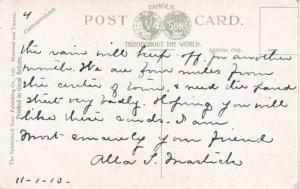 4
FAMOUS
POST CARD.
THROUGHOUT THE WORLD.
Correspondence.
Address Only.
the rain will keep off for another
month. We are four miles from
the center of town, & need the
street very badly. Hoping you will
like these cards. I am
Most sincerely your friend
Alla
11-1-10.
The Valentine & Sons' Publishing Co., Ltd., Montreal and Toronto.
Printed in Great Britain.